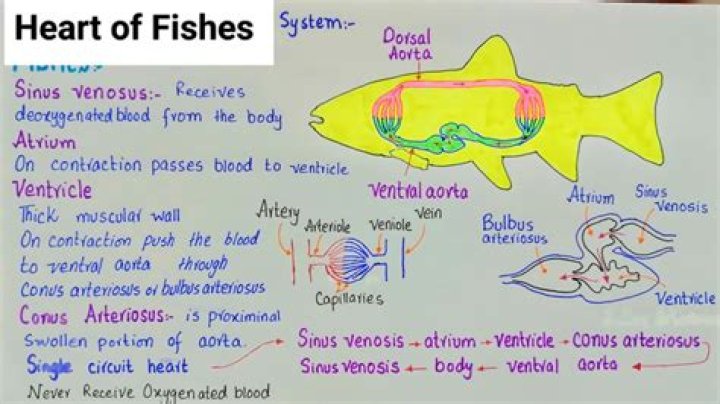 Heart of Fishes
System:-
Sinus venosus:- Receives
deoxygenated blood from the body
Atrium
On contraction passes blood to ventricle
Ventricle
Thick muscular wall
On contraction push the blood
to ventral aorta through
Conus arteriosus or bulbus arteriosus
Conus Arteriosus:- is proximinal
Swollen portion of aorta.
Single circuit heart
Never Receive Oxygenated blood
Dorsal
Aorta
ventral aorta
Artery
Arteriole
Veniole
vein
Capillaries
Bulbus
arteriosus
Atrium
Sinus
venosis
Ventricle
Sinus venosis → atrium → ventricle → conus arteriosus
Sinus venosis ← body ← ventral aorta